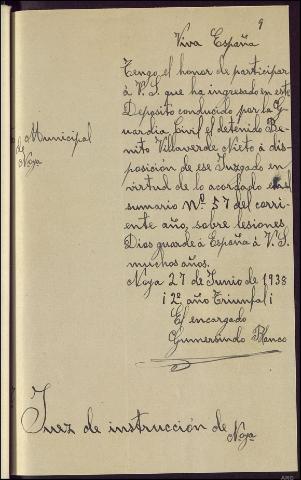 9
Viva España
Tengo el honor de participar
á V. S. que ha ingresado en este
Deposito conducido por la Gu-
ardia Civil el detenido Be-
nito Villaverde Nieto á dis-
posición de ese Juzgado en
virtud de lo acordado en el
sumario Nº 57 del corri-
ente año, sobre lesiones,
Dios guarde á España á V. S.
muchos años.
Noya 27 de Junio de 1938
¡2º año Triunfal¡
El encargado
Gumersindo Blanco
Municipal
de
Noya
Juez de instrucción de Noya